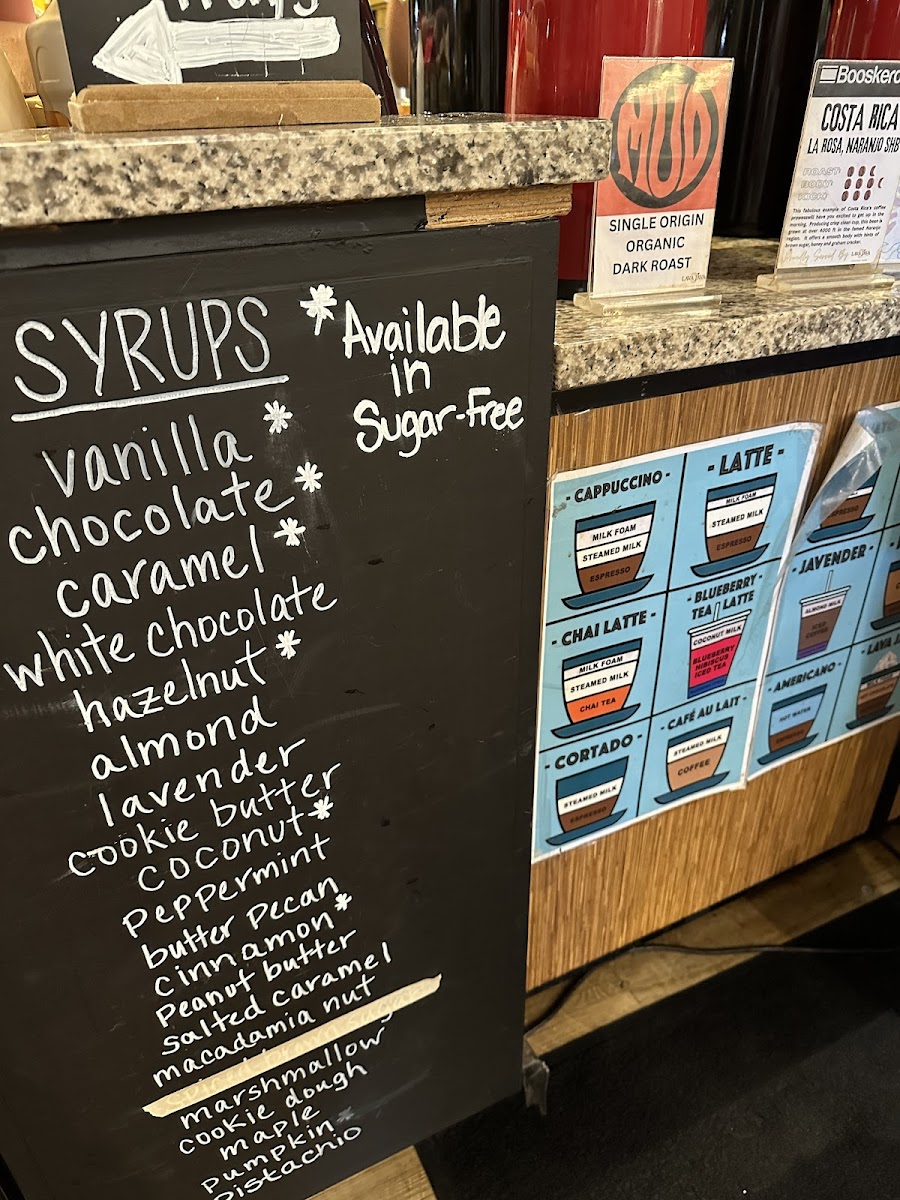 SYRUPS
* Available
in
Sugar-Free
vanilla *
chocolate *
caramel *
white chocolate
hazelnut *
almond
lavender
cookie butter
coconut *
peppermint
butter pecan
cinnamon *
Peanut butter
salted caramel
macadamia nut
marshmallow
cookie dough
maple
pumpkin *
Pistachio
MUD
SINGLE ORIGIN
ORGANIC
DARK ROAST
COSTA RICA
LA ROSA, NARANJO SHB
ROAST:
BODY:
This fabulous example of Costa Rica's coffee
prowess will have you excited to get up in the
morning. Producing crisp clean cup, this bean is
grown at over 4000 ft in the famed Naranjo
region. It offers a smooth body with hints of
brown sugar, honey and graham cracker.
Proudly Served By
- CAPPUCCINO -
MILK FOAM
STEAMED MILK
ESPRESSO
- LATTE -
MILK FOAM
STEAMED MILK
ESPRESSO
- CHAI LATTE -
MILK FOAM
STEAMED MILK
CHAI TEA
- BLUEBERRY
TEA LATTE -
COCONUT MILK
BLUEBERRY
HIBISCUS
ICED TEA
- CORTADO -
STEAMED MILK
ESPRESSO
- CAFÉ AU LAIT -
STEAMED MILK
COFFEE
ESPRESSO
- LAVENDER -
ALMOND MILK
ICED
COFFEE
- AMERICANO -
HOT WATER
ESPRESSO
- LAVA